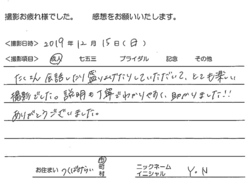 撮影お疲れ様でした。　感想をお願いいたします。
<撮影日時> 2019年12月15日(日)
<撮影項目> 成人 七五三 ブライダル 記念 その他
たくさん お話したり 盛り上げたりしていただいて、とても楽しい
撮影でした。説明も丁寧でわかりやすく、助かりました!!
ありがとうございました。
お住まい つくばみらい 市 町 村 ニックネーム イニシャル Y.N